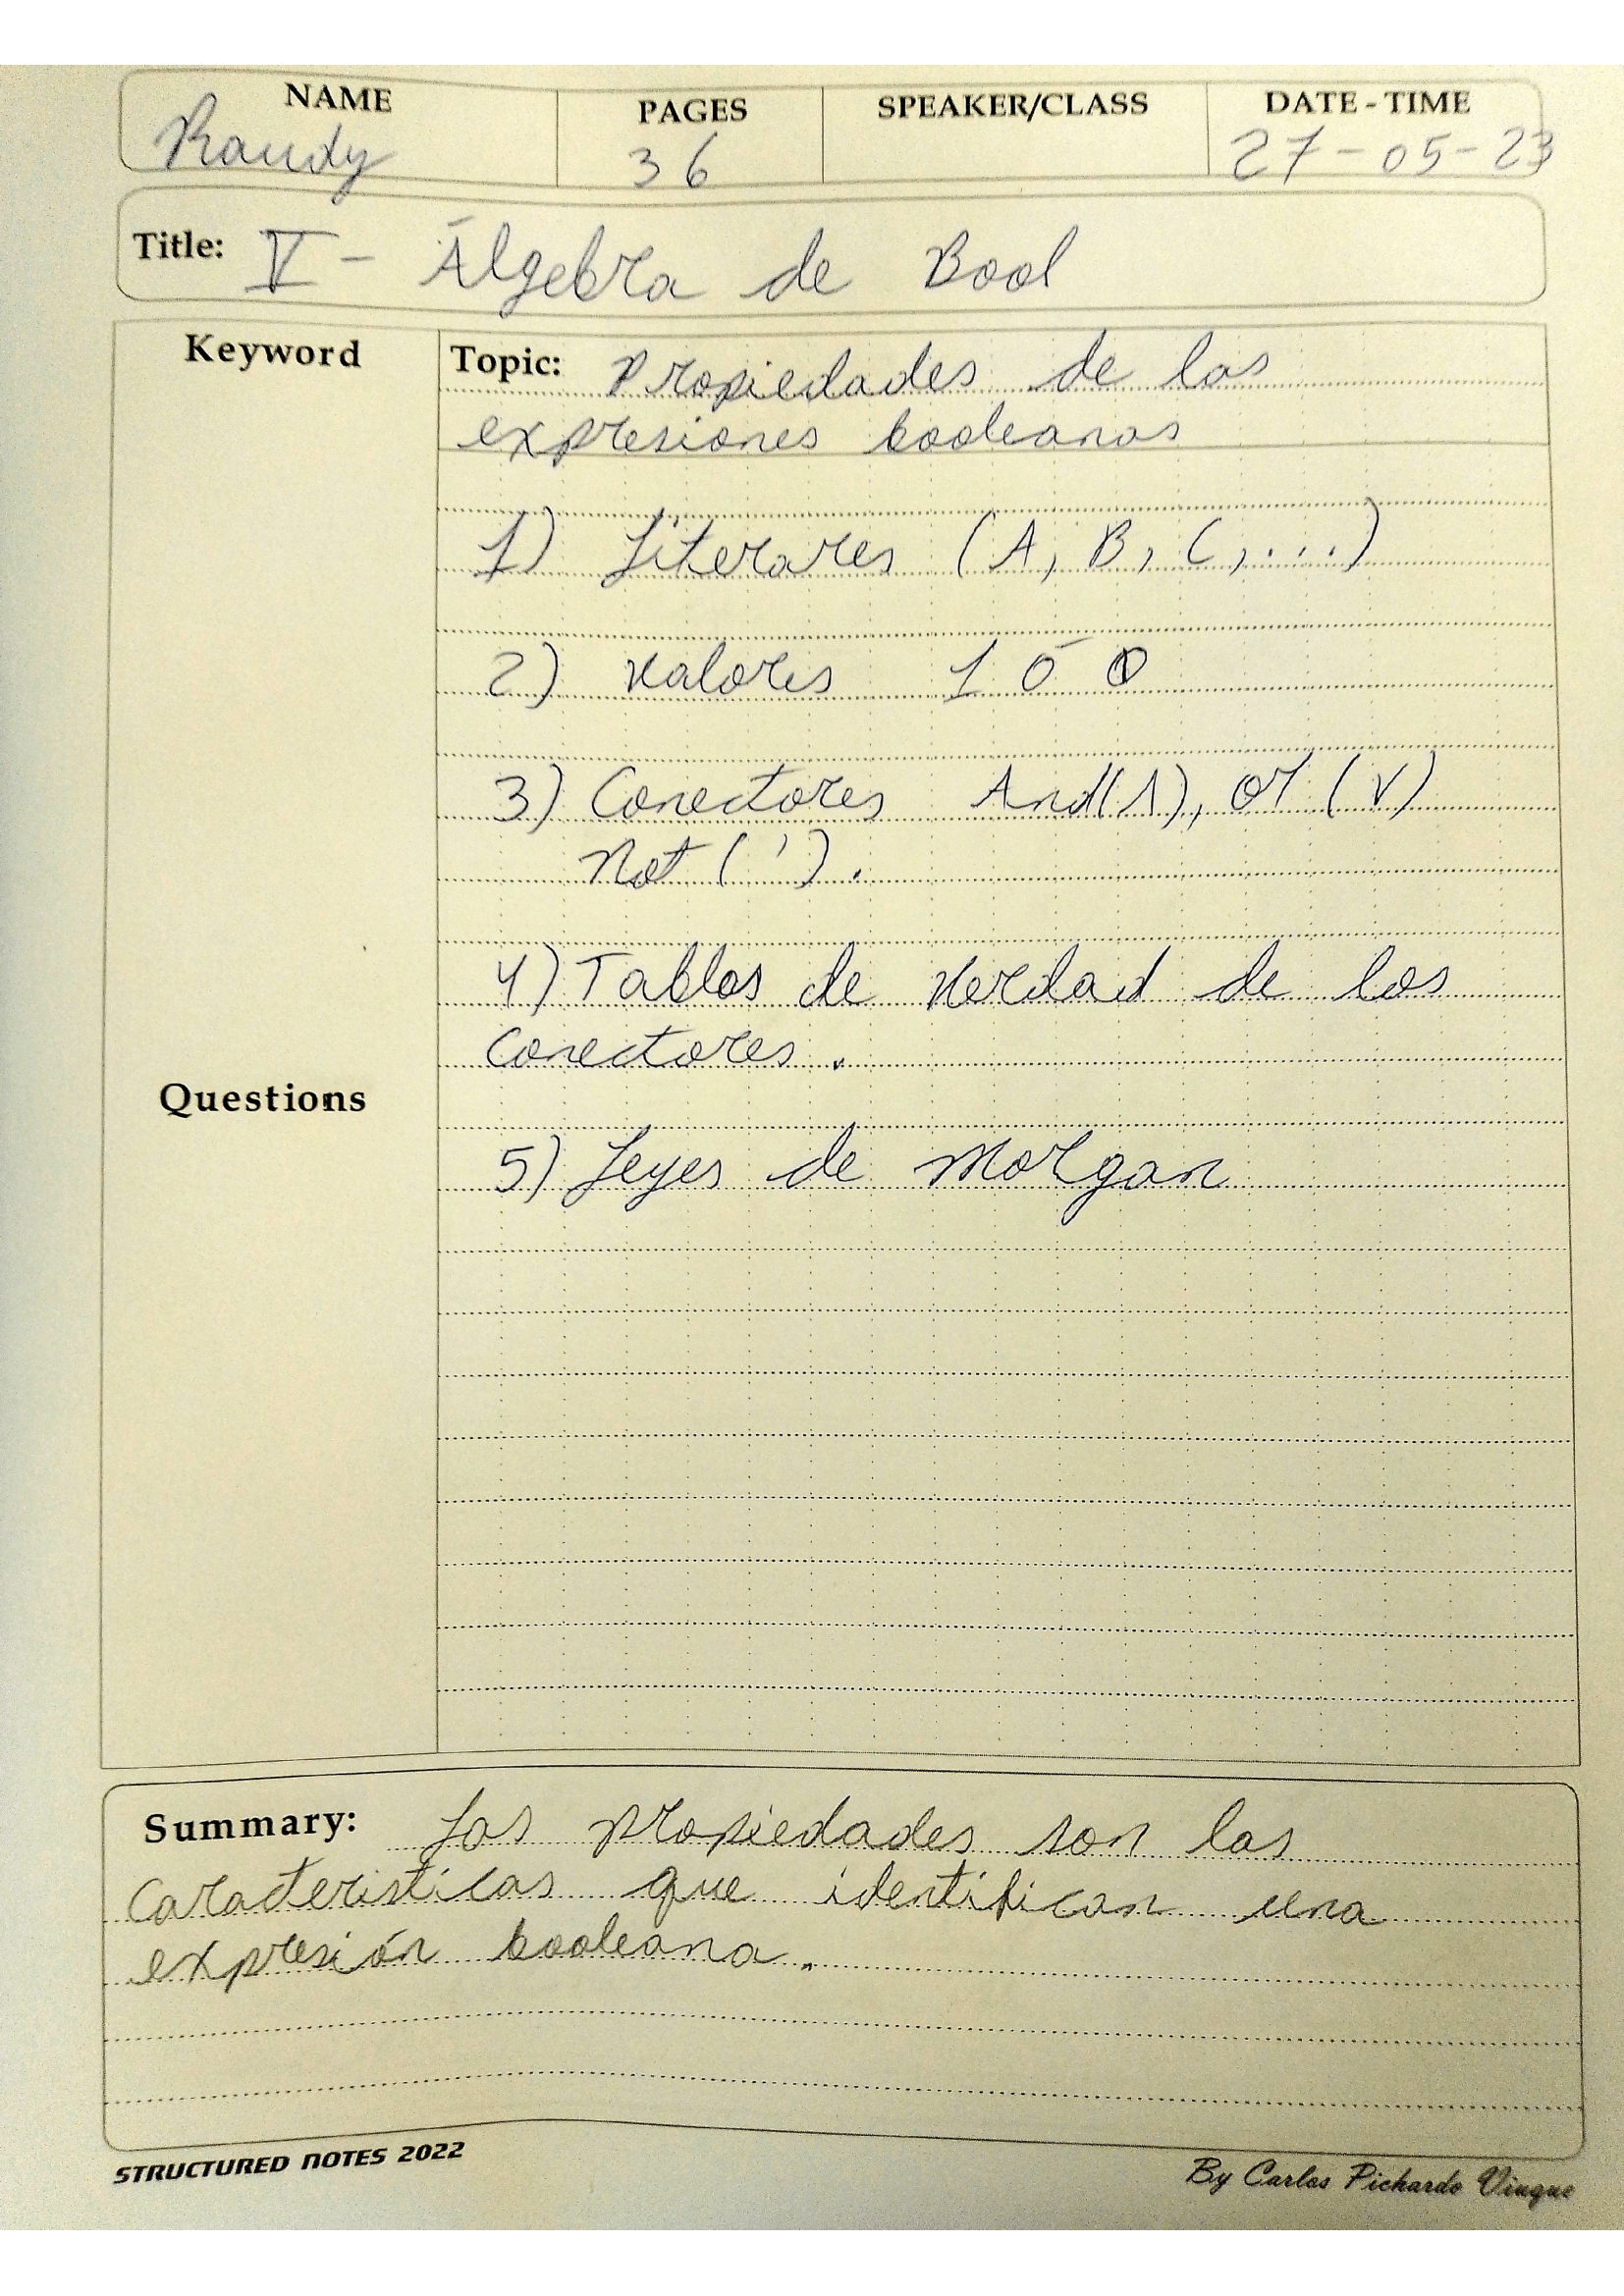 NAME PAGES SPEAKER/CLASS DATE-TIME
Randy 36 27-05-23
Title: V- Álgebra de Bool
Keyword
Topic: Propiedades de las
expresiones booleanas
1) Literares (A, B, C, ...)
2) Valores 1 ó 0
3) Conectores And(∧), or (∨)
Not (').
4) Tablas de verdad de los
conectores.
Questions
5) Leyes de Morgan
Summary: Las propiedades son las
características que identifican una
expresión booleana.
STRUCTURED NOTES 2022
By Carlos Pichardo Viuque